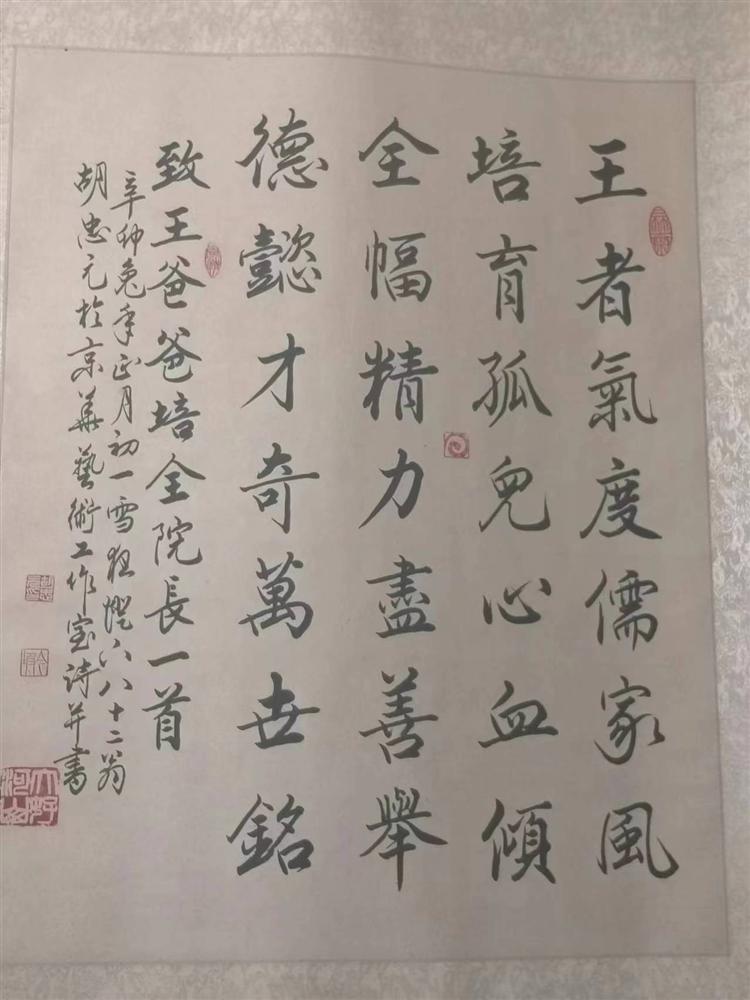 王者氣度儒家風
培育孤兒心血傾
全幅精力盡善舉
德懿才奇萬世銘
致王爸爸培全院長一首
辛卯兔年正月初一雪狂叟八十二翁
胡忠元於京華藝術工作室詩并書
大好河山